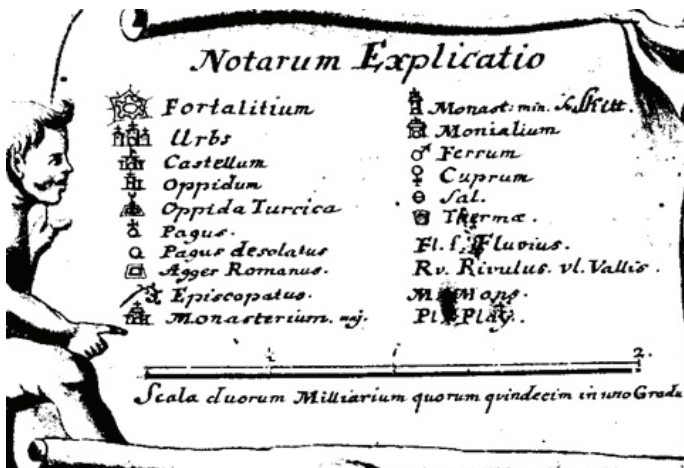 Notarum Explicatio
Fortalitium
Urbs
Castellum
Oppidum
Oppida Turcica
Pagus.
Pagus desolatus
Agger Romanus.
Episcopatus.
Monasterium. maj.
Monast: min. Skitt.
Monialium
Ferrum
Cuprum
Sal.
Thermæ.
Fl. f. Fluvius.
Rv. Rivulus. vl. Vallis.
M. Mons.
Pl. Play.
1 2.
Scala duorum Milliarium quorum quindecim in uno Gradu